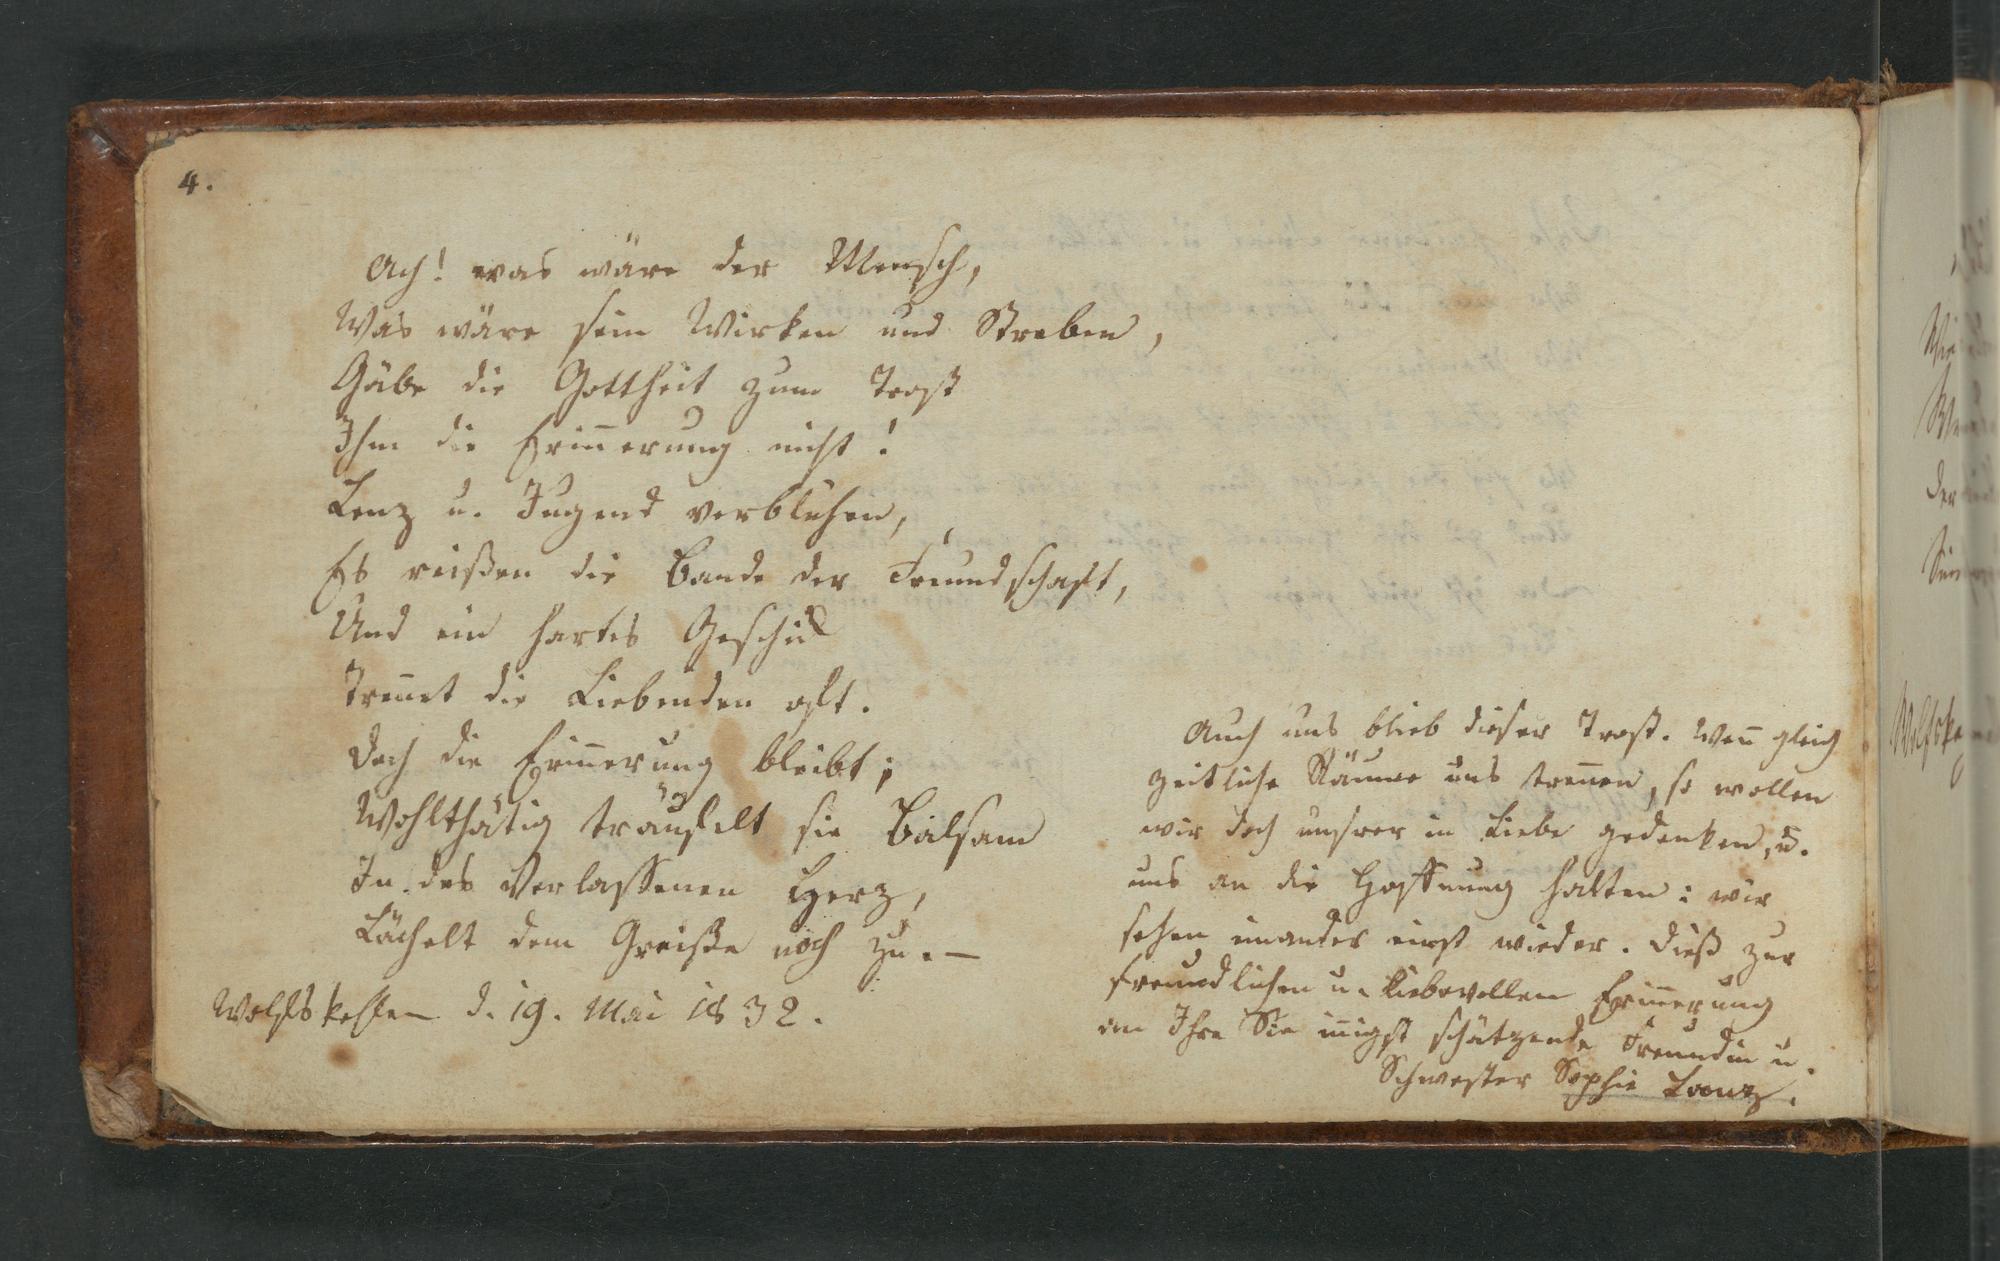 4.
Ach! was wäre der Mensch,
Was wäre sein Wirken und Streben,
Gäbe die Gottheit zum Trost
Ihm die Erin̄erung nicht!
Lenz u. Jugend verblühen,
Es reißen die Bande der Freundschaft,
Und ein hartes Geschick
Tren̄et die Liebenden oft.
Doch die Erin̄erung bleibt;
Wohlthätig träufelt sie Balsam
In des Verlassenen Herz,
Lächelt dem Greiße noch zu. —
Wolfskehlen d. 19. Mai 1832.
Auch uns blieb dieser Trost. Wen̄ gleich
zeitliche Räume uns tren̄en, so wollen
wir doch unsrer in Liebe gedenken, u.
uns an die Hoffnung halten: wir
sehen einander einst wieder. Dieß zur
freundlichen u. liebevollen Erin̄erung
an Ihre Sie in̄igst schätzende Freundin u.
Schwester Sophie
Wie
Der